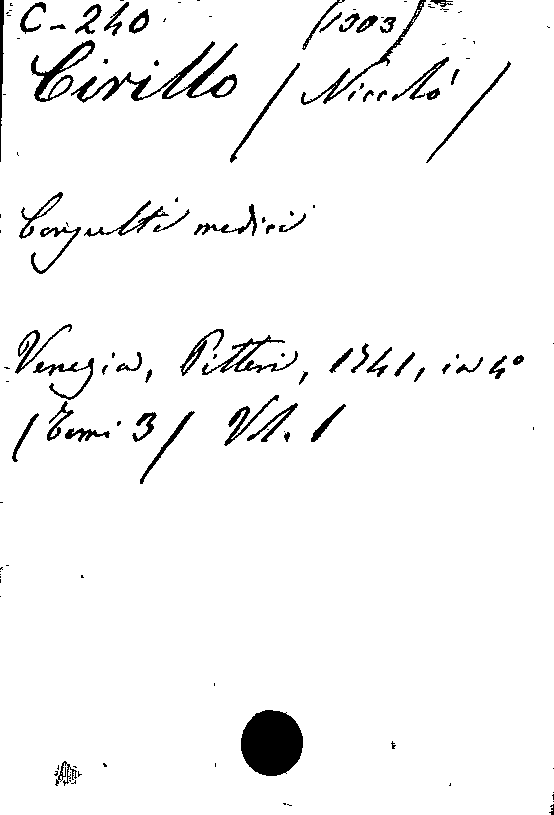 C-240 (1303)
Cirillo (Niccolò)
Consulti medici
Venezia, Pitteri, 1741, in 4°
(Tomi 3) Vol. 1